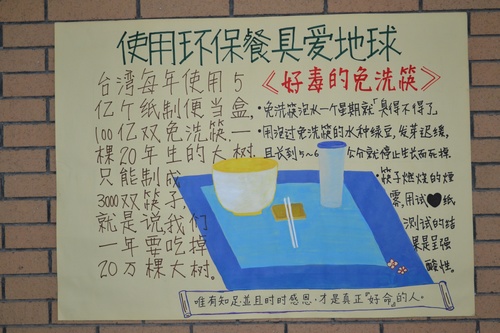 使用环保餐具爱地球
台湾每年使用5
亿个纸制便当盒,
100亿双免洗筷,一
棵20年生的大树
只能制成
3000双筷子,
就是说我们
一年要吃掉
20万棵大树。
《好毒的免洗筷》
·免洗筷泡水一个星期就「臭得不得了
·用泡过免洗筷的水种绿豆,发芽迟缓,
且长到5~6公分就停止生长而死掉
·筷子燃烧的烟
雾,用试纸
测试的结
果是呈强
酸性。
唯有知足並且时时感恩,才是真正『好命』的人。